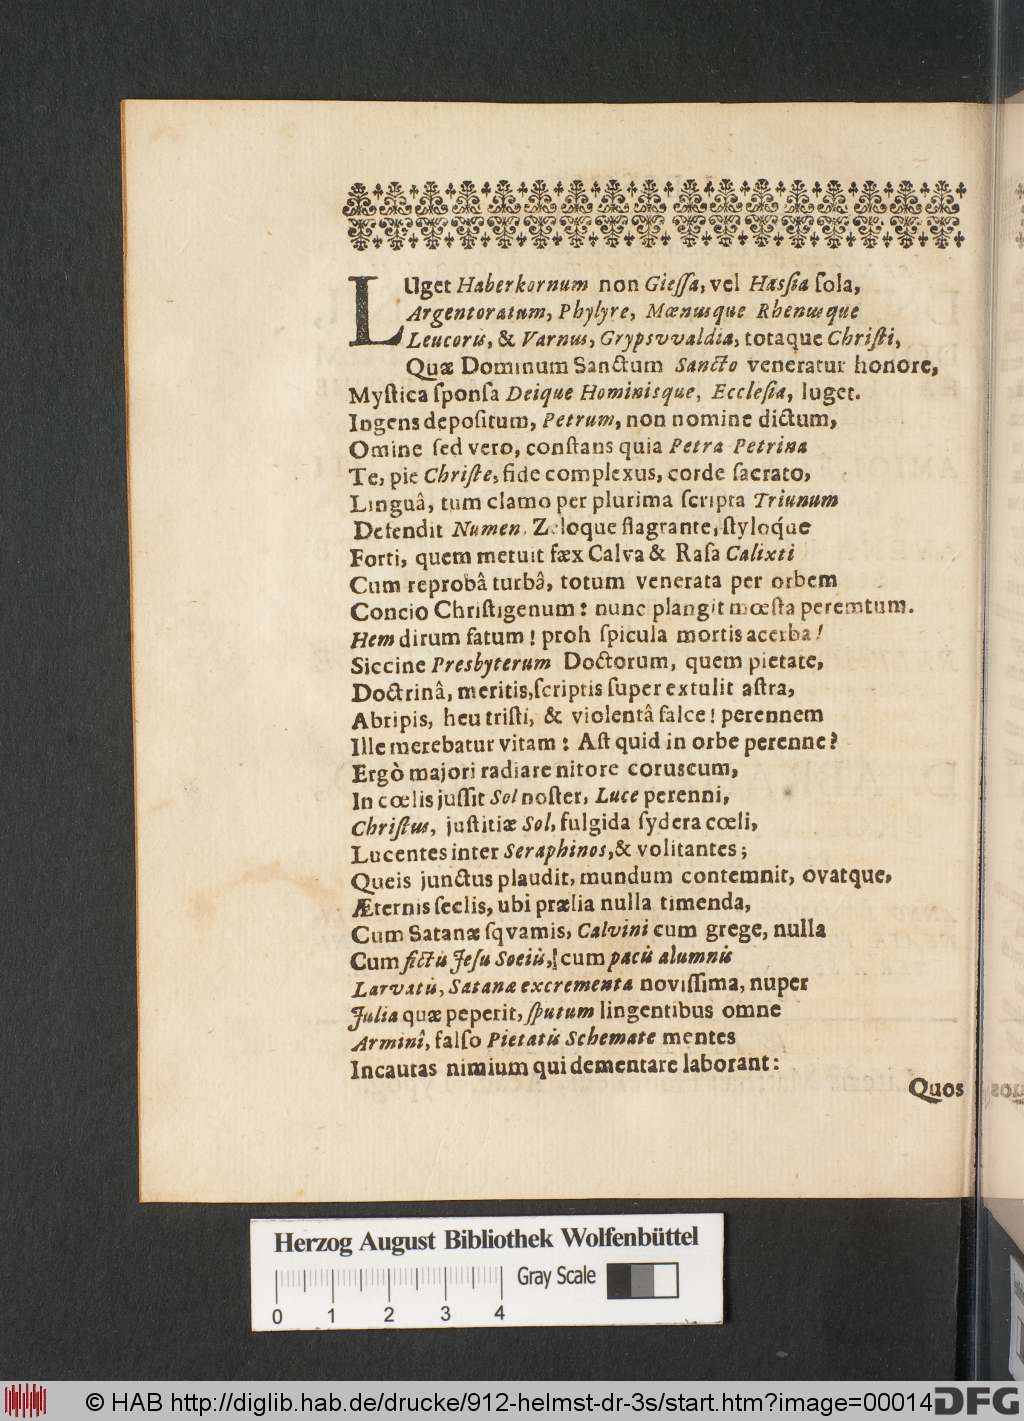 LUget Haberkornum non Giessa, vel Hassia sola,
Argentoratum, Phylyre, Mœnusque Rhenusque
Leucoris, & Varnus, Grypsvvaldia, totaque Christi,
Quæ Dominum Sanctum Sancto veneratur honore,
Mystica sponsa Deique Hominisque, Ecclesia, luget.
Ingens depositum, Petrum, non nomine dictum,
Omine sed vero, constans quia Petra Petrina
Te, pie Christe, fide complexus, corde sacrato,
Linguâ, tum clamo per plurima scripta Triunum
Defendit Numen, Zeloque flagrante, styloq́ue
Forti, quem metuit fæx Calva & Rasa Calixti
Cum reprobâ turbâ, totum venerata per orbem
Concio Christigenum: nunc plangit mœsta peremtum.
Hem dirum fatum! proh spicula mortis acerba!
Siccine Presbyterum Doctorum, quem pietate,
Doctrinâ, meritis, scriptis super extulit astra,
Abripis, heu tristi, & violentâ falce! perennem
Ille merebatur vitam: Ast quid in orbe perenne?
Ergò majori radiare nitore coruscum,
In cœlis jussit Sol noster, Luce perenni,
Christus, justitiæ Sol, fulgida sydera cœli,
Lucentes inter Seraphinos, & volitantes;
Queis junctus plaudit, mundum contemnit, ovatque,
Æternis seclis, ubi prælia nulla timenda,
Cum Satanæ sqvamis, Calvini cum grege, nulla
Cum fictis Jesu Sociis, cum pacis alumnis
Larvatis, Satanæ excrementa novissima, nuper
Julia quæ peperit, sputum lingentibus omne
Arminî, falso Pietatis Schemate mentes
Incautas nimium qui dementare laborant:
Quos
Herzog August Bibliothek Wolfenbüttel
Gray Scale
0 1 2 3 4
© HAB http://diglib.hab.de/drucke/912-helmst-dr-3s/start.htm?image=00014
DFG